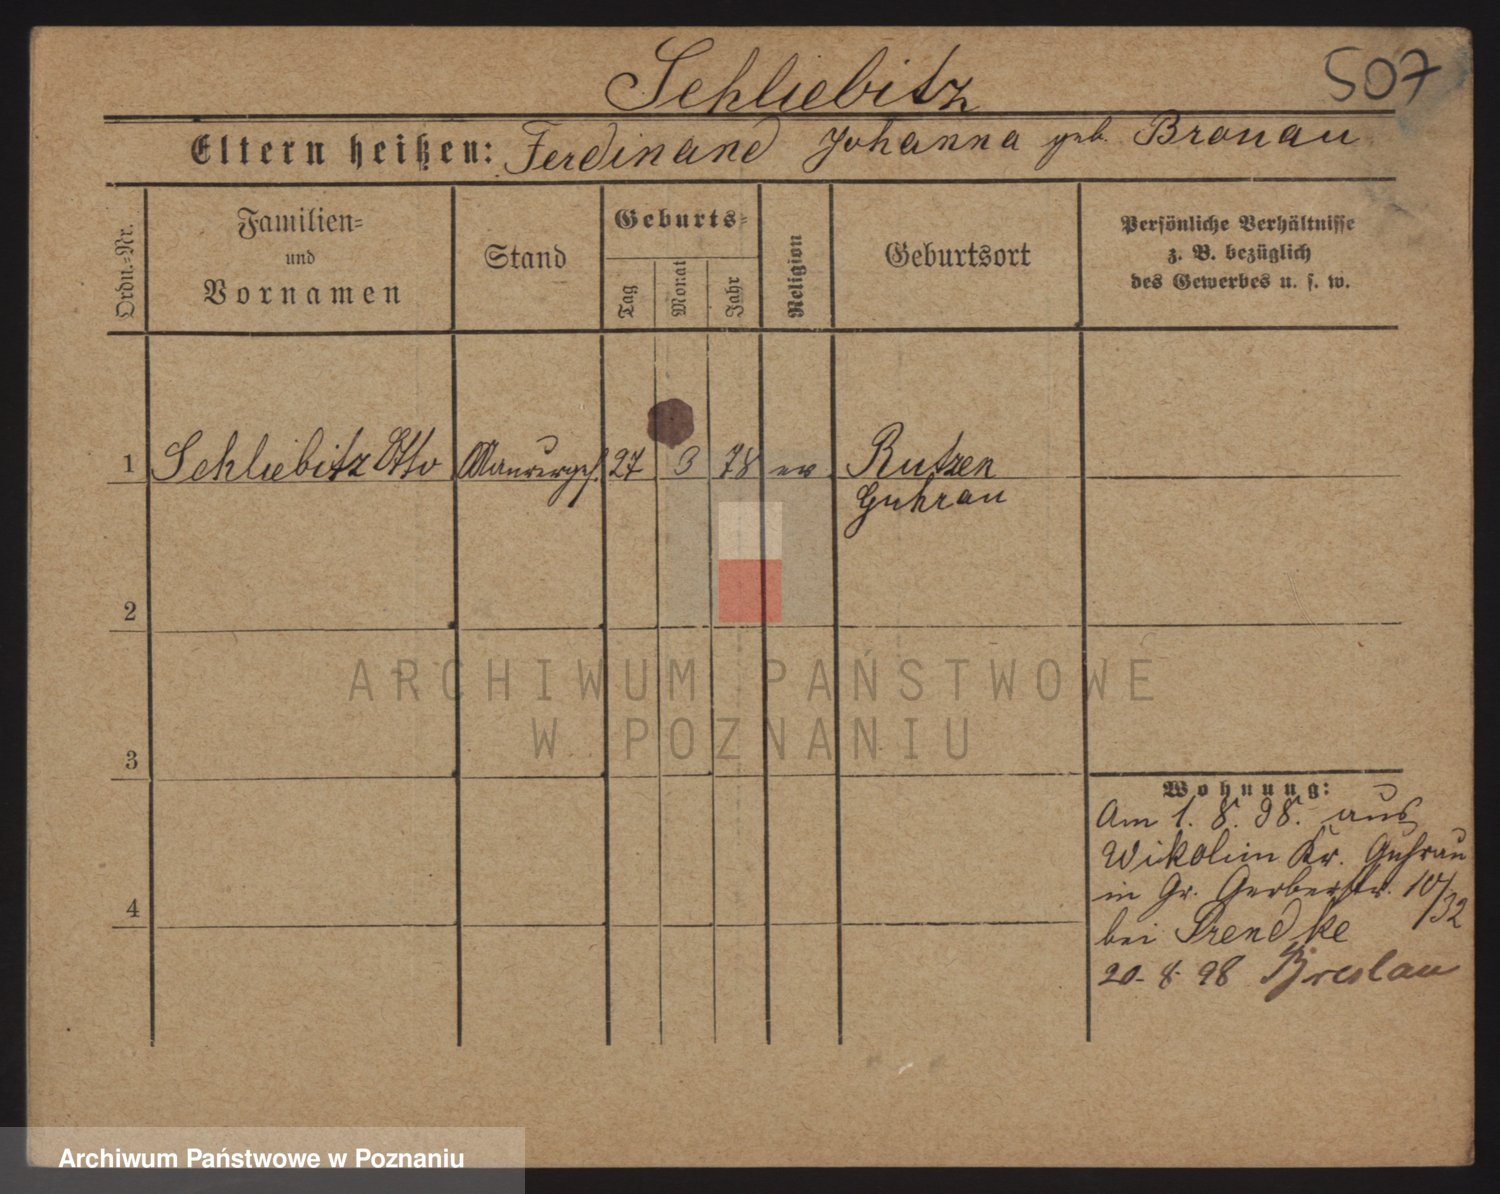 Schliebitz
507
Eltern heißen: Ferdinand Johanna geb. Bronau
Ordn.-Nr.
Familien-
und
Vornamen
Stand
Geburts-
Tag
Monat
Jahr
Religion
Geburtsort
Persönliche Verhältnisse
z. B. bezüglich
des Gewerbes u. s. w.
1 Schliebitz Otto Maurerges. 27 3 78 ev Rutzen
Guhrau
2
3
4
Wohnung:
Am 1. 8. 98. aus
Wikolin Kr. Guhrau
in Gr. Gerberstr. 10/32
bei
20. 8. 98 Breslau
ARCHIWUM PAŃSTWOWE
W POZNANIU
Archiwum Państwowe w Poznaniu